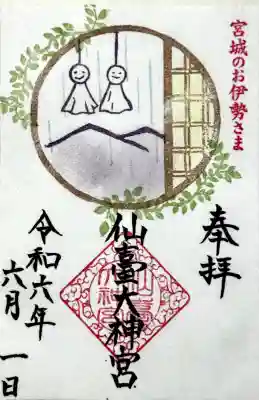 宮城のお伊勢さま
奉拝
仙臺大神宮
令和六年
六月 一日